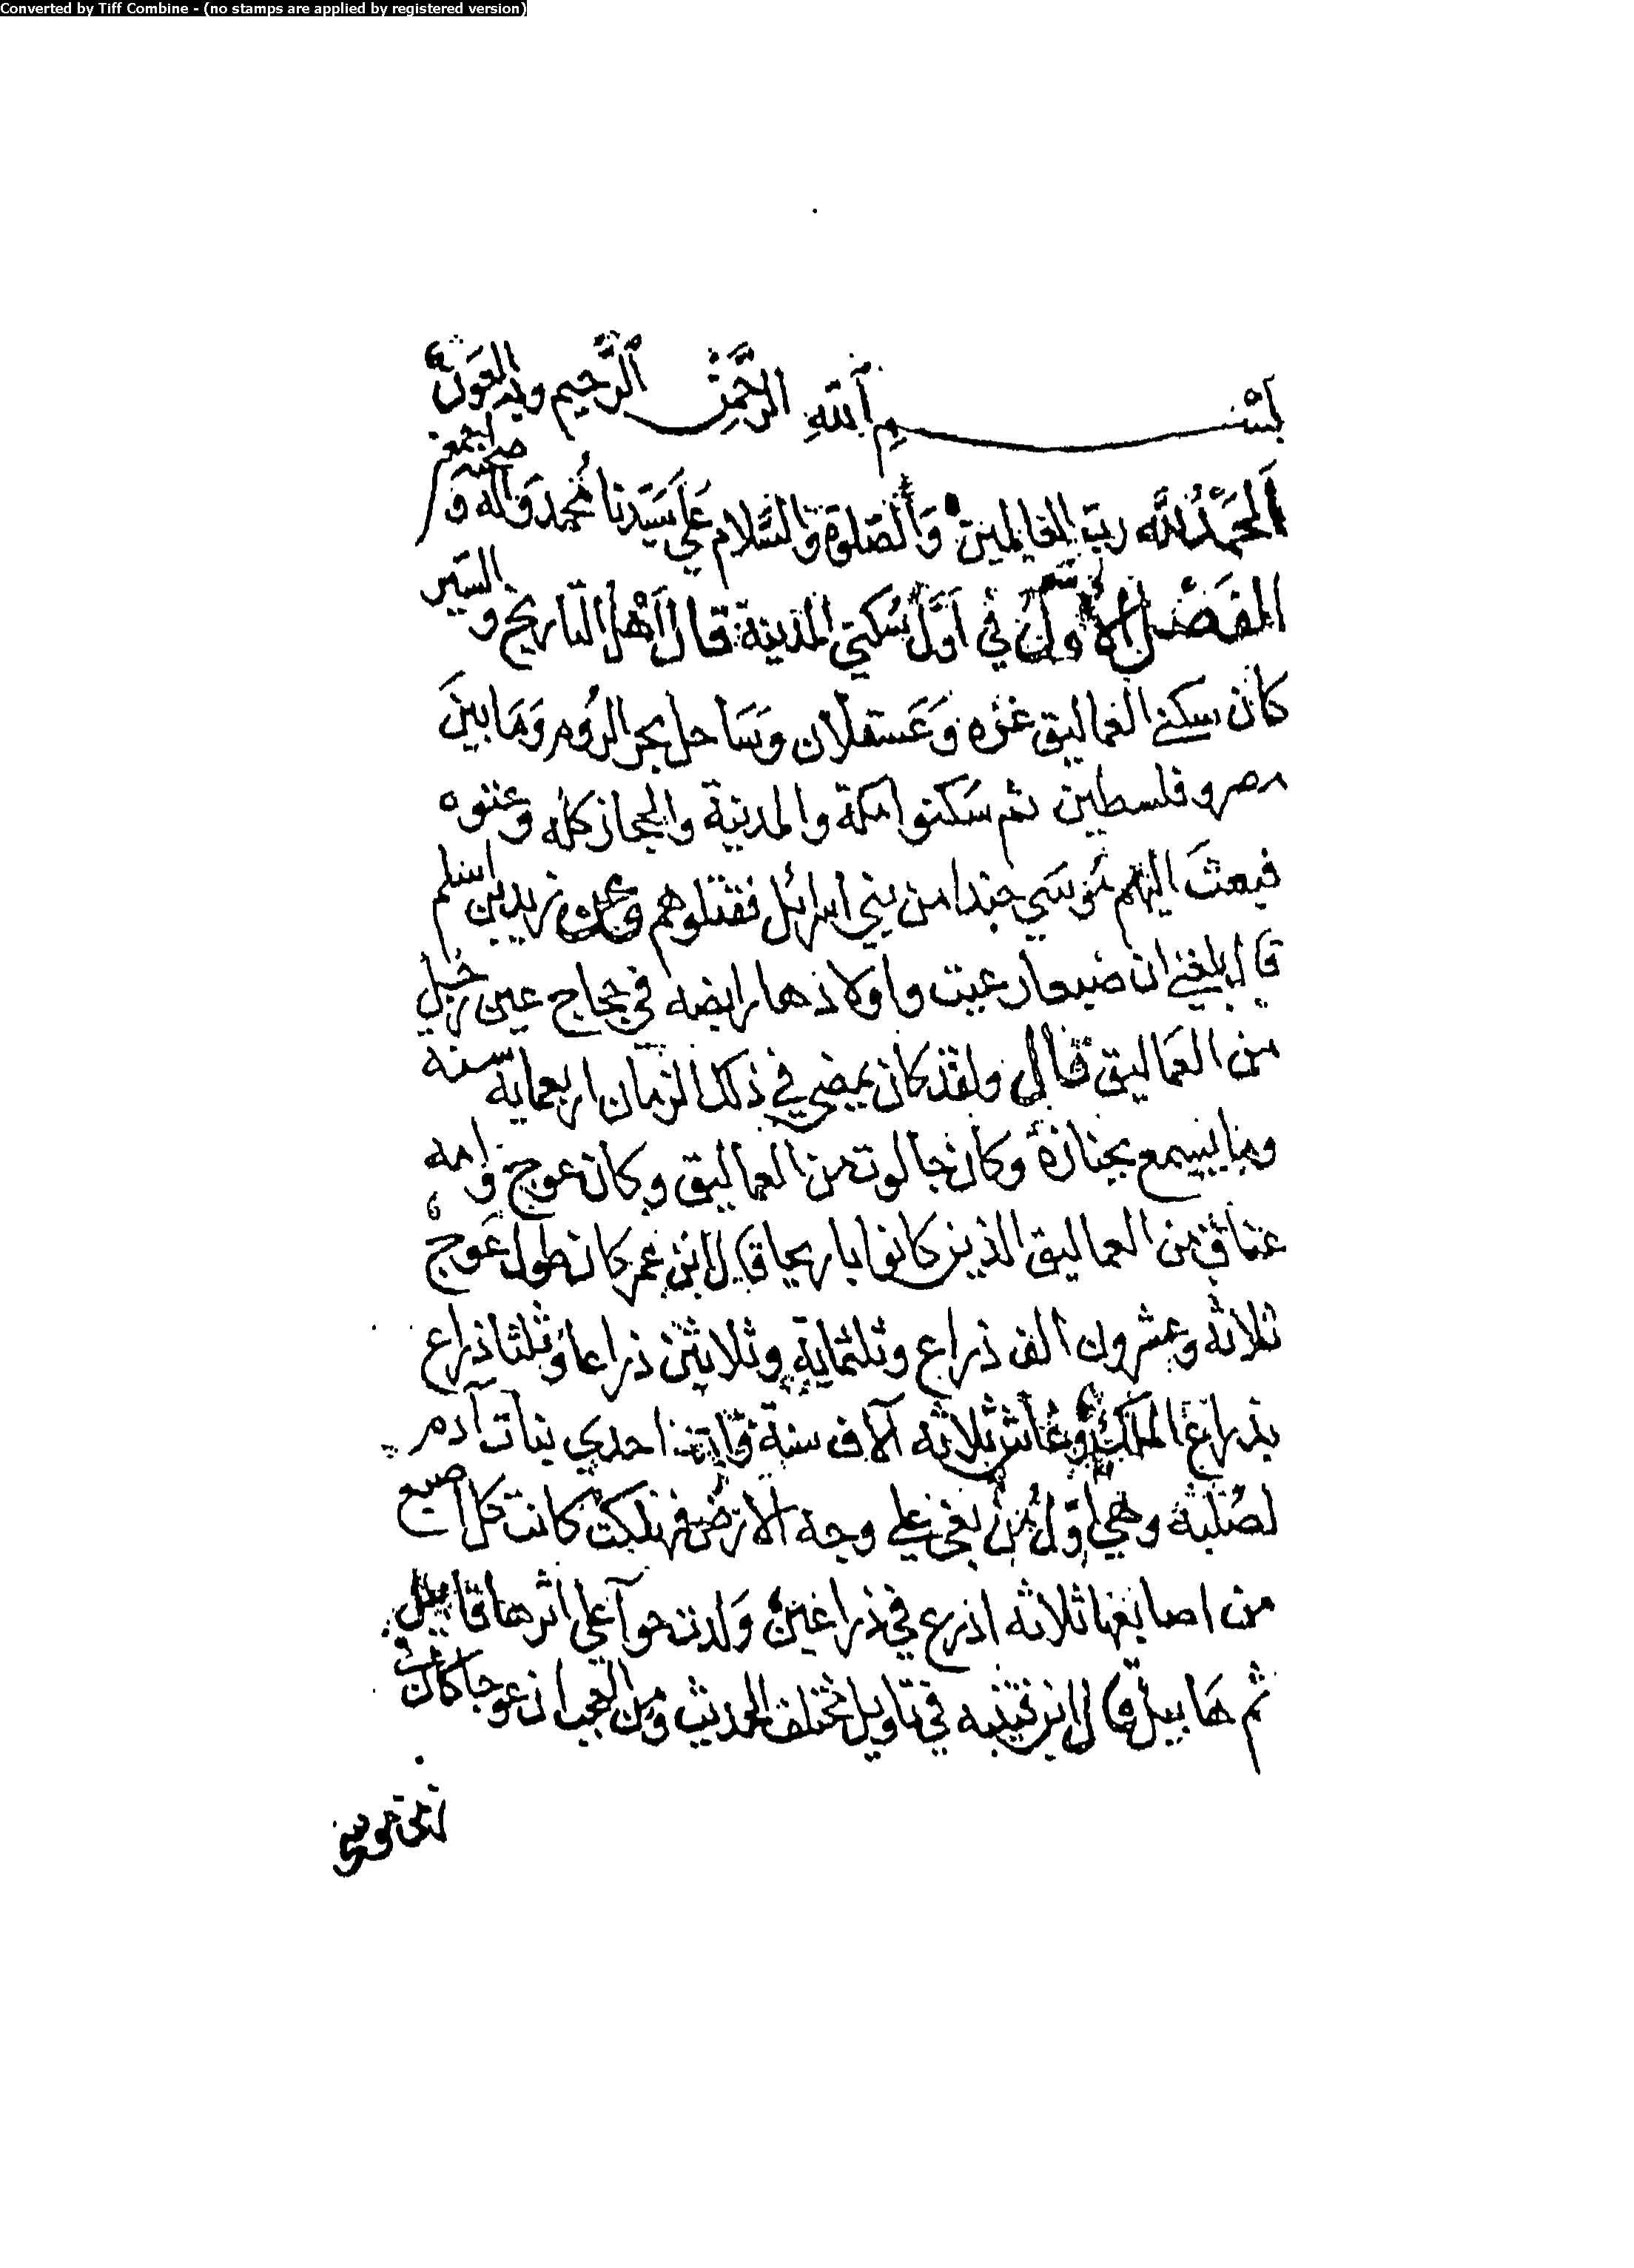 Converted by Tiff Combine - (no stamps are applied by registered version)
بِسْمِ اَللّٰهِ الرَّحْمٰنِ الرَّحيم وبه العَون
اَلحَمْدُ لِلّٰه ربّ العالمين وَالصّلوة وَالسَّلام عَلَى سَيّدنا مُحمد وَآله وَصحبه اجمعين
الفَصْل الأَوَّلُ في اَوَّل سُكنَى المدينة قال اَهْل التاريخ والسّير
كان سكنى العماليق غزه وَعَسقلان وسَاحل بحر الرُوم وَمَا بينَ
مصر وفلسطين ثم سَكنوا مكة والمدينة والحجاز كله وعتوه
فبعثَ اليهم مُوسَي جندا من بني اسرائل فقتلوهم وعن زيد بن اسلم
قال بلغني ان ضبعا رعيت واولادها رابضه في حجاج عين رَجُل
من العَماليق قال ولقد كان يمضي في ذلك الزمان اربعماية سنة
وما يسمع بجنازة وكان جالوت من العماليق وكان عوج وامه
عناق من العماليق الذين كانوا باريحا قال ابن عمر كان طول عَوج
ثلاثة وعشرون الف ذراع وثلثماية وثلاثين ذراعا وثلثا ذراع
بذراع الملك وعاش ثلاثه آلاف سنة وامه احدي بنات آدم
لصُلبه وهي اوّل مُن بغى علي وجه الارض فهلكت كانت كل اصبع
من اصابعها ثلاثه اذرع في ذراعين وَلدت حوآ علي اثرها قابيل
ثم هَابيل قال ابن قتيبه في تاويل مختلف الحديث وَمن العجب ان عوجا كان